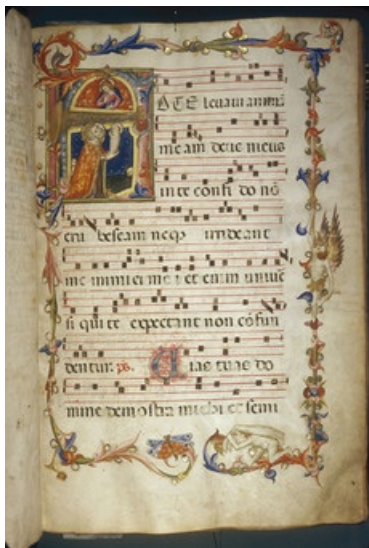 D TE levavi animā
meam deus meus
in te confi do nō
eru bescam neqȝ irrideant
me inimici me i et enim univer
si qui te expectant non cōfun
dentur. ps. Vias tuas do
mine demonstra michi et semi